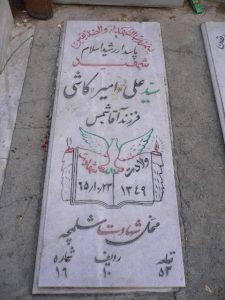 پاسدار رشید اسلام
شهید
سید علی امیر کاشی
فرزند آقا شمس
ولادت
شهادت
۱۳۴۹
۶۵/۱۰/۲۳
محل شهادت شلمچه
قطعه ردیف شماره
۵۳ ۱۰ ۱۶